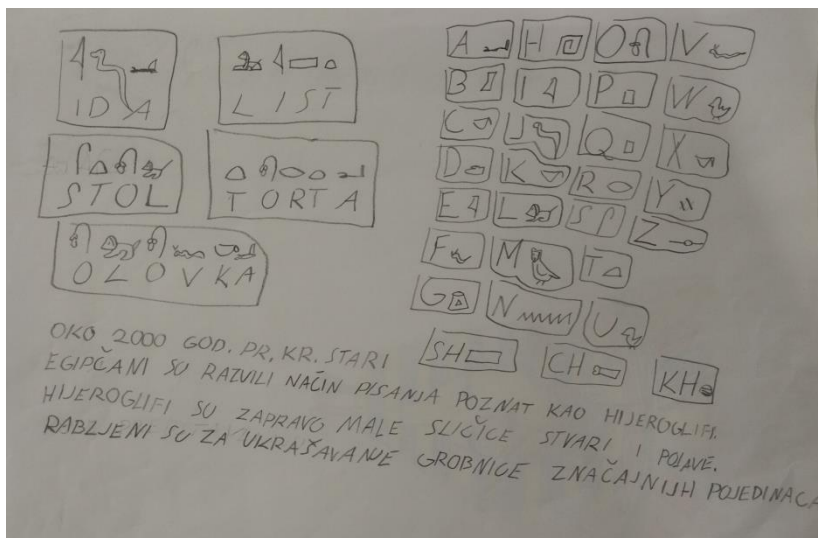 IDA
LIST
STOL
TORTA
OLOVKA
A H O V
B I P W
C J Q X
D K R Y
E L S Z
F M T
G N U
SH CH KH
OKO 2000 GOD. PR. KR. STARI
EGIPČANI SU RAZVILI NAČIN PISANJA POZNAT KAO HIJEROGLIFI.
HIJEROGLIFI SU ZAPRAVO MALE SLIČICE STVARI I POJAVE.
RABLJENI SU ZA UKRAŠAVANJE GROBNICE ZNAČAJNIJH POJEDINACA